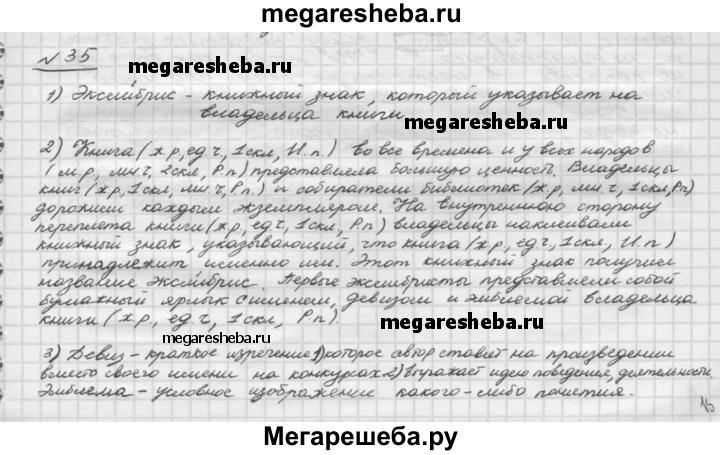 megaresheba.ru
№ 35
megaresheba.ru
1) Экслибрис - книжный знак, который указывает на
владельца книги
megaresheba.ru
2) Книга (ж.р, ед.ч, 1скл, И.п.) во все времена и у всех народов
(м.р., мн.ч, 2скл, Р.п) представляла большую ценность. Владельцы
книг (ж.р, 1скл, мн.ч, Р.п.) и собиратели библиотек (ж.р, мн.ч., 1скл, Рп)
дорожили каждым экземпляром. На внутреннюю сторону
переплета книги (ж.р, ед.ч, 1скл, Р.п) владельцы наклеивали
книжный знак, указывающий, что книга (ж.р, ед.ч, 1скл, И.п)
принадлежит именно им. Этот книжный знак получил
название экслибрис. Первые экслибристы представляли собой
бумажный ярлык с именем, девизом и эмблемой владельца
книги (ж.р., ед.ч, 1скл, Р.п).
megaresheba.ru
megaresheba.ru
3) Девиз - краткое изречение 1) которое автор ставит на произведении
вместо своего имени на конкурсах 2) выражает идею поведения, деятельности.
Эмблема - условное изображение какого-либо понятия.
15
Мегарешеба.ру